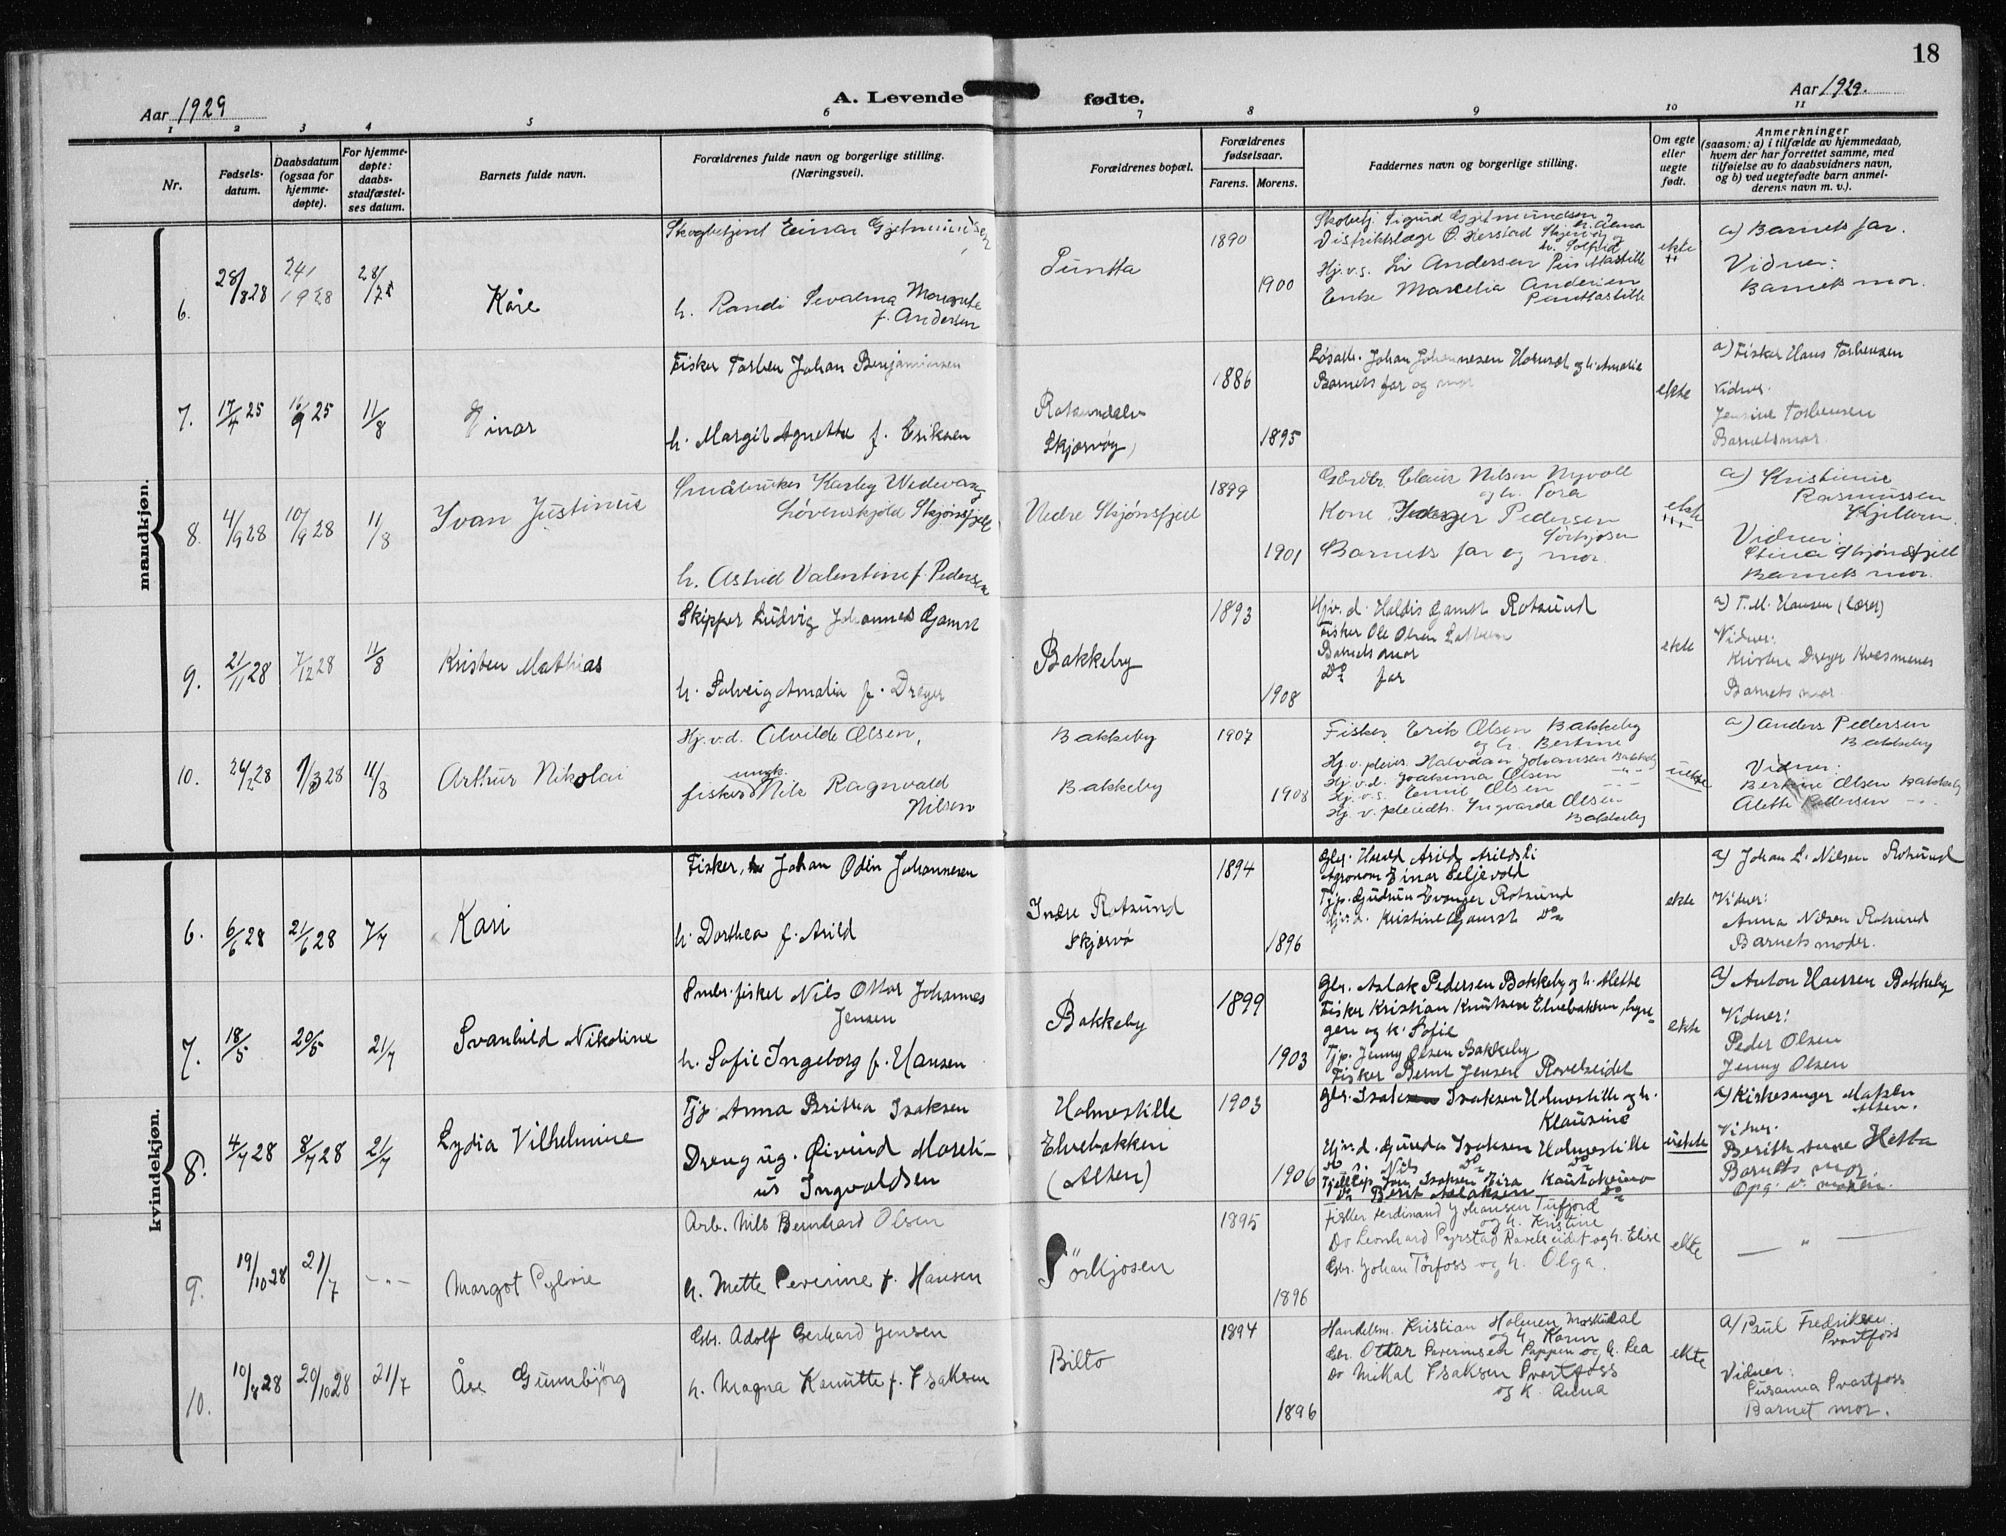 18
Aar 1929
A. Levende fødte.
Aar 1929.
1 2 3 4 5 6 7 8 9 10 11
Nr.
Fødsels-
datum.
Daabsdatum
(ogsaa for
hjemme-
døpte).
For hjemme-
døpte:
daabs-
stadfæstel-
ses datum.
Barnets fulde navn.
Forældrenes fulde navn og borgerlige stilling.
(Næringsvei).
Forældrenes bopæl.
Forældrenes
fødselsaar.
Farens. Morens.
Faddernes navn og borgerlige stilling.
Om egte
eller
uegte
født.
Anmerkninger
(saasom: a) i tilfælde av hjemmedaab,
hvem der har forrettet samme, med
tilføielse av to daabsvidners navn,
og b) ved uegtefødte barn anmel-
derens navn m. v.).
mandkjøn.
6.
28/8 28
Kåre
Skogbetjent Einar Gjetmundsen
h. Randi Sevalma Margrethe
f. Andersen
Puntta
1890
1900
Skobetj. Sigurd Gjetmundsen
Hj.v.s. Andersen
Enke Marcelia Andersen
ekte
a) Barnets far.
Vidner:
Barnets mor.
7.
17/4 25
16/9 25
11/8
Einar
Fisker Torben Johan Benjaminsen
h. Margit Agnethe f. Eriksen
Rotsundelv
Skjervøy
1886
1895
Johan Johannesen og h. Amalie
Barnets far og mor
ekte
a) Fisker Hans Torbensen
Vidner.
Jensine Torbensen
Barnets mor.
8.
4/9 28
10/9 28
11/8
Ivan Justinus
Småbruker Karley Wedevang
Løvenskjold Skjønsfjell
h. Astrid Valentine f. Pedersen
Nedre Skjønsfjell
1899
1901
Claus Nilsen Nyvoll
og h. Tora
Kone Pedersen
Sørkjosen
Barnets far og mor.
ekte
a) Kristianne
Rasmussen
Vidner:
Stina Skjønsfjell
Barnets mor.
9.
21/11 28
7/12 28
11/8
Kristen Mathias
Skipper Ludvig Johannes Gamst
h. Solveig Amalia f. Dreyer
Bakkeby
1893
1908
Hjv. d. Haldis Gamst Rotsund
Fisker Ole Olsen
Barnets mor
Do far
ekte
a) T. M. Hansen (Lærer)
Vidner:
Kristine Dreyer Kvesmenes
Barnets mor.
10.
26/2 28
1/3 28
11/8
Arthur Nikolai
Hj.v.d. Alvilde Olsen,
ungk.
fisker Nils Ragnvald
Nilsen
Bakkeby
Bakkeby
1907
1908
Fisker Erik Olsen Bakkeby
og h. Bertine
Hj. v. pleies. Halvdan Johansen Bakkeby
Hj.v.d. Joakima Olsen - " -
Hj.v.s. Emil Olsen - - -
Hj. v. pleiedt. Ingvarda Olsen
Bakkeby
uekte
a) Anders Pedersen
Bakkeby
Vidner:
Bertine Olsen Bakkeby
Alette Pedersen - " -
kvindekjøn.
6.
6/6 28
21/6 28
7/7
Kari
Fisker, Johan Odin Johannesen
h. Dorthea f. Arild
Indre Rotsund
Skjervø
1894
1896
Gbr. Harald Arild Arildsli
Agronom Einar Seljevold
Tjp. Gudrun Evanger Rotsund
Hjv.d. Kristine Gamst Do
ekte
a) Johan L. Nilsen Rotsund
Vidner:
Anna Nilsen Rotsund
Barnets moder.
7.
18/5
20/5
21/7
Svanhild Nikoline
Smbr. fisker Nils Ottar Johannes
Jensen
h. Sofie Ingeborg f. Hansen
Bakkeby
1899
1903
Gbr. Aslak Pedersen Bakkeby og h. Mette
Fisker Kristian Knutsen Elvebakken, Lyn-
gen og h. Sofie
Tjp. Jenny Olsen Bakkeby
Fisker Bernt Jensen Ravelseidet
ekte
a) Anton Hansen Bakkeby
Vidner:
Peder Olsen
Jenny Olsen
8.
4/7 28
8/7 28
21/7
Lydia Vilhelmine
Tjp. Anna Britha Isaksen
Dreng ug. Øivind Moreti-
us Ingvaldsen
Holmestille
Elvebakken
(Alten)
1903
1906
Gbr. Isak Isaksen Holmestille og h.
Klausine
Hjv.d. Gunda Isaksen Holmestille
Do s. Nils Do Do
Isaksen Kautokeino
Do Berit Aslaksen Do
uekte
a) Kirkesanger Matsen
Alten.
Vidner
Berith Anne Hetta
Barnets mor.
Opg. v. moren.
9.
19/10 28
21/7
- " -
Margot Sylvie
Arb. Nils Bernhard Olsen
h. Mette Severine f. Hansen
Sørkjosen
1895
1896
Fisker Ferdinand Johansen Tufjord
og h. Kristine
Do Leonhard Pyrstad Ravelseidet og h. Elise
Gbr. Johan Tørfoss og h. Olga.
ekte
— " —
10.
19/8 28
20/10 28
21/7
Åse Gunnbjørg
Gbr. Adolf Gerhard Jensen
h. Magna Kanutte f. Isaksen
Bilto
1894
1896
Handelsm. Kristian Holmen Maskudal
og h. Karen
Gbr. Ottar Severinsen Puppen og h. Lea
Do Mikal Isaksen Svartfoss
og h. Anna
ekte
a/ Paul Fredriksen.
Svartfoss
Vidner:
Susanna Svartfoss
Barnet mor.